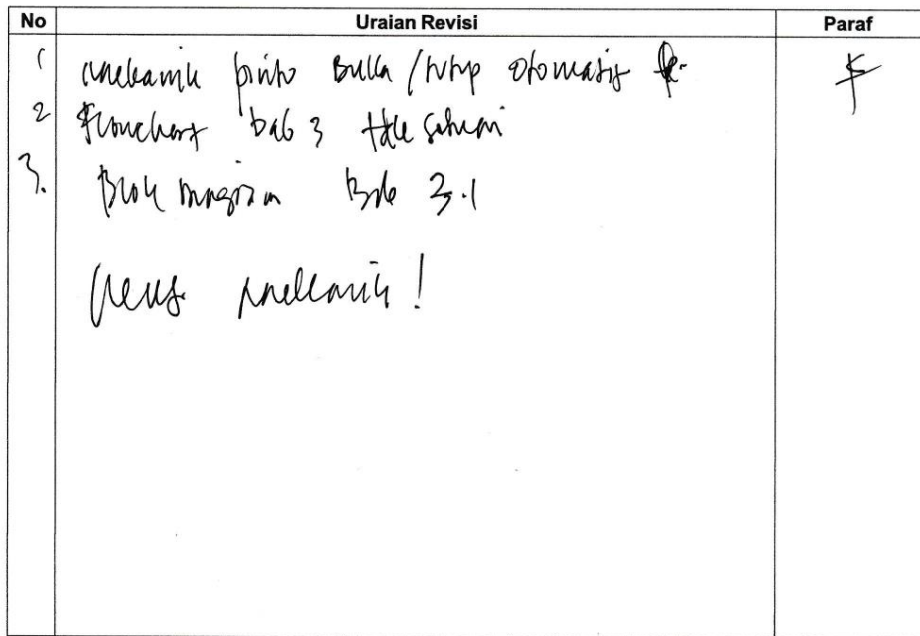 No Uraian Revisi Paraf
1 mekanik pintu Buka / tutup otomatis
2 Flowchart bab 3 tdk sesuai
3. Blok Diagram Bab 3.1
mekanik!